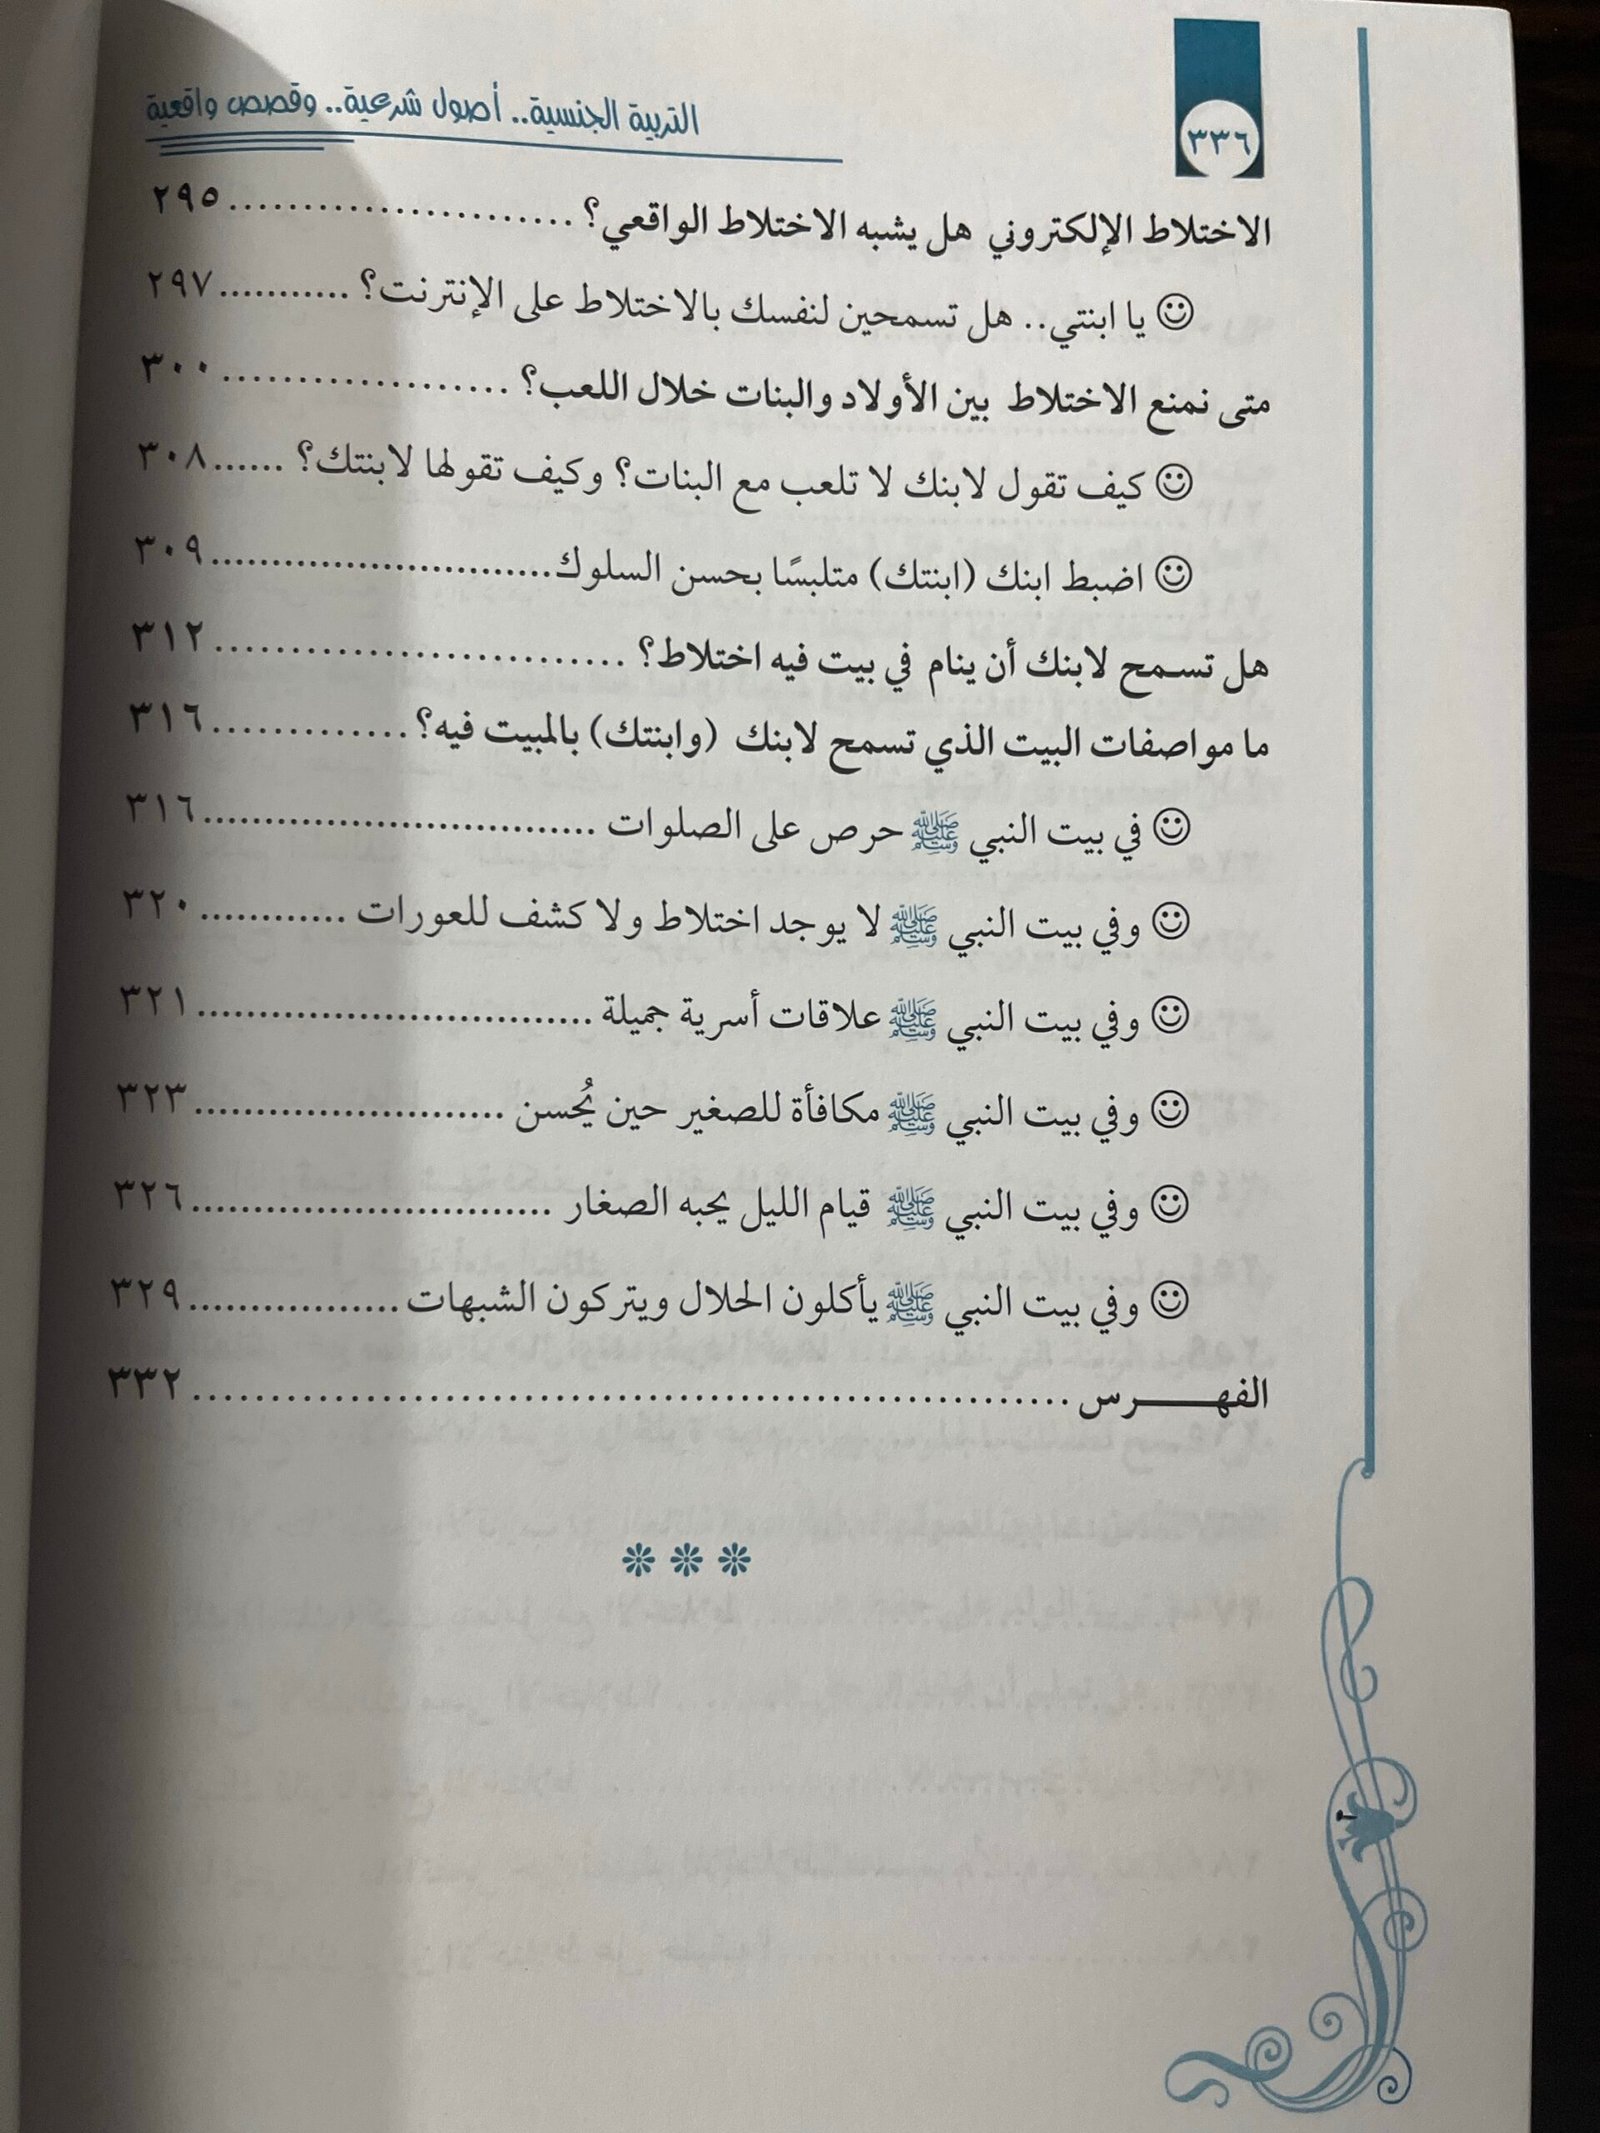 التربية الجنسية.. أصول شرعية.. وقصص واقعية
٣٣٦
الاختلاط الإلكتروني هل يشبه الاختلاط الواقعي؟ ....................... ٢٩٥
☺ يا ابنتي.. هل تسمحين لنفسك بالاختلاط على الإنترنت؟ ........... ٢٩٧
متى نمنع الاختلاط بين الأولاد والبنات خلال اللعب؟ ................... ٣٠٠
☺ كيف تقول لابنك لا تلعب مع البنات؟ وكيف تقولها لابنتك؟ ...... ٣٠٨
☺ اضبط ابنك (ابنتك) متلبسًا بحسن السلوك ............................ ٣٠٩
هل تسمح لابنك أن ينام في بيت فيه اختلاط؟ ........................... ٣١٢
ما مواصفات البيت الذي تسمح لابنك (وابنتك) بالمبيت فيه؟ ............. ٣١٦
☺ في بيت النبي ﷺ حرص على الصلوات ................................ ٣١٦
☺ وفي بيت النبي ﷺ لا يوجد اختلاط ولا كشف للعورات ............ ٣٢٠
☺ وفي بيت النبي ﷺ علاقات أسرية جميلة ................................ ٣٢١
☺ وفي بيت النبي ﷺ مكافأة للصغير حين يُحسن ......................... ٣٢٣
☺ وفي بيت النبي ﷺ قيام الليل يحبه الصغار ............................. ٣٢٦
☺ وفي بيت النبي ﷺ يأكلون الحلال ويتركون الشبهات ................. ٣٢٩
الفهـــرس ......................................................... ٣٣٢